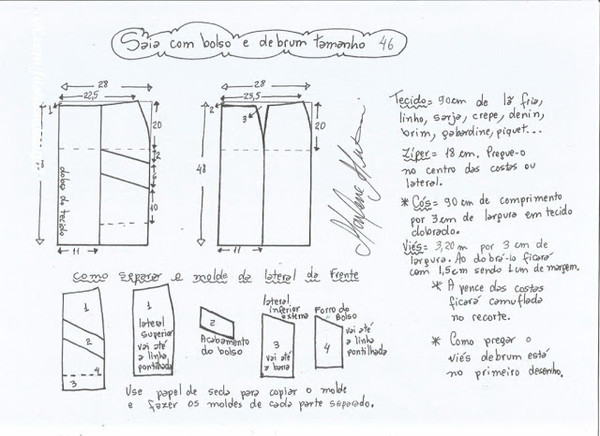 Saia com bolso e debrum tamanho 46
28
22,5
2
20
2
2
10
dobra do tecido
11
28
23,5
2
3
20
48
11
Marlene Mukai
Tecido= 90cm de lã fria,
linho, sarja, crepe, denin,
brim, gabardine, piquet...
Zíper= 18 cm. Pregue-o
no centro das costas ou
lateral.
* Cós= 90 cm de comprimento
por 3cm de largura em tecido
dobrado.
Viés= 3,20m por 3 cm de
largura. Ao dobrá-lo ficará
com 1,5cm sendo 1cm de margem.
* A pence das costas
ficará camuflada
no recorte.
* Como pregar o
viés debrum está
no primeiro desenho.
como separar o molde da lateral da frente
1
2
3
4
1
lateral
superior
vai até
a linha
pontilhada
2
Acabamento
do bolso
lateral
inferior
externa
3
vai até
a barra
Forro do
Bolso
4
vai até
a linha
pontilhada
Use papel de seda para copiar o molde
e fazer os moldes de cada parte separado.